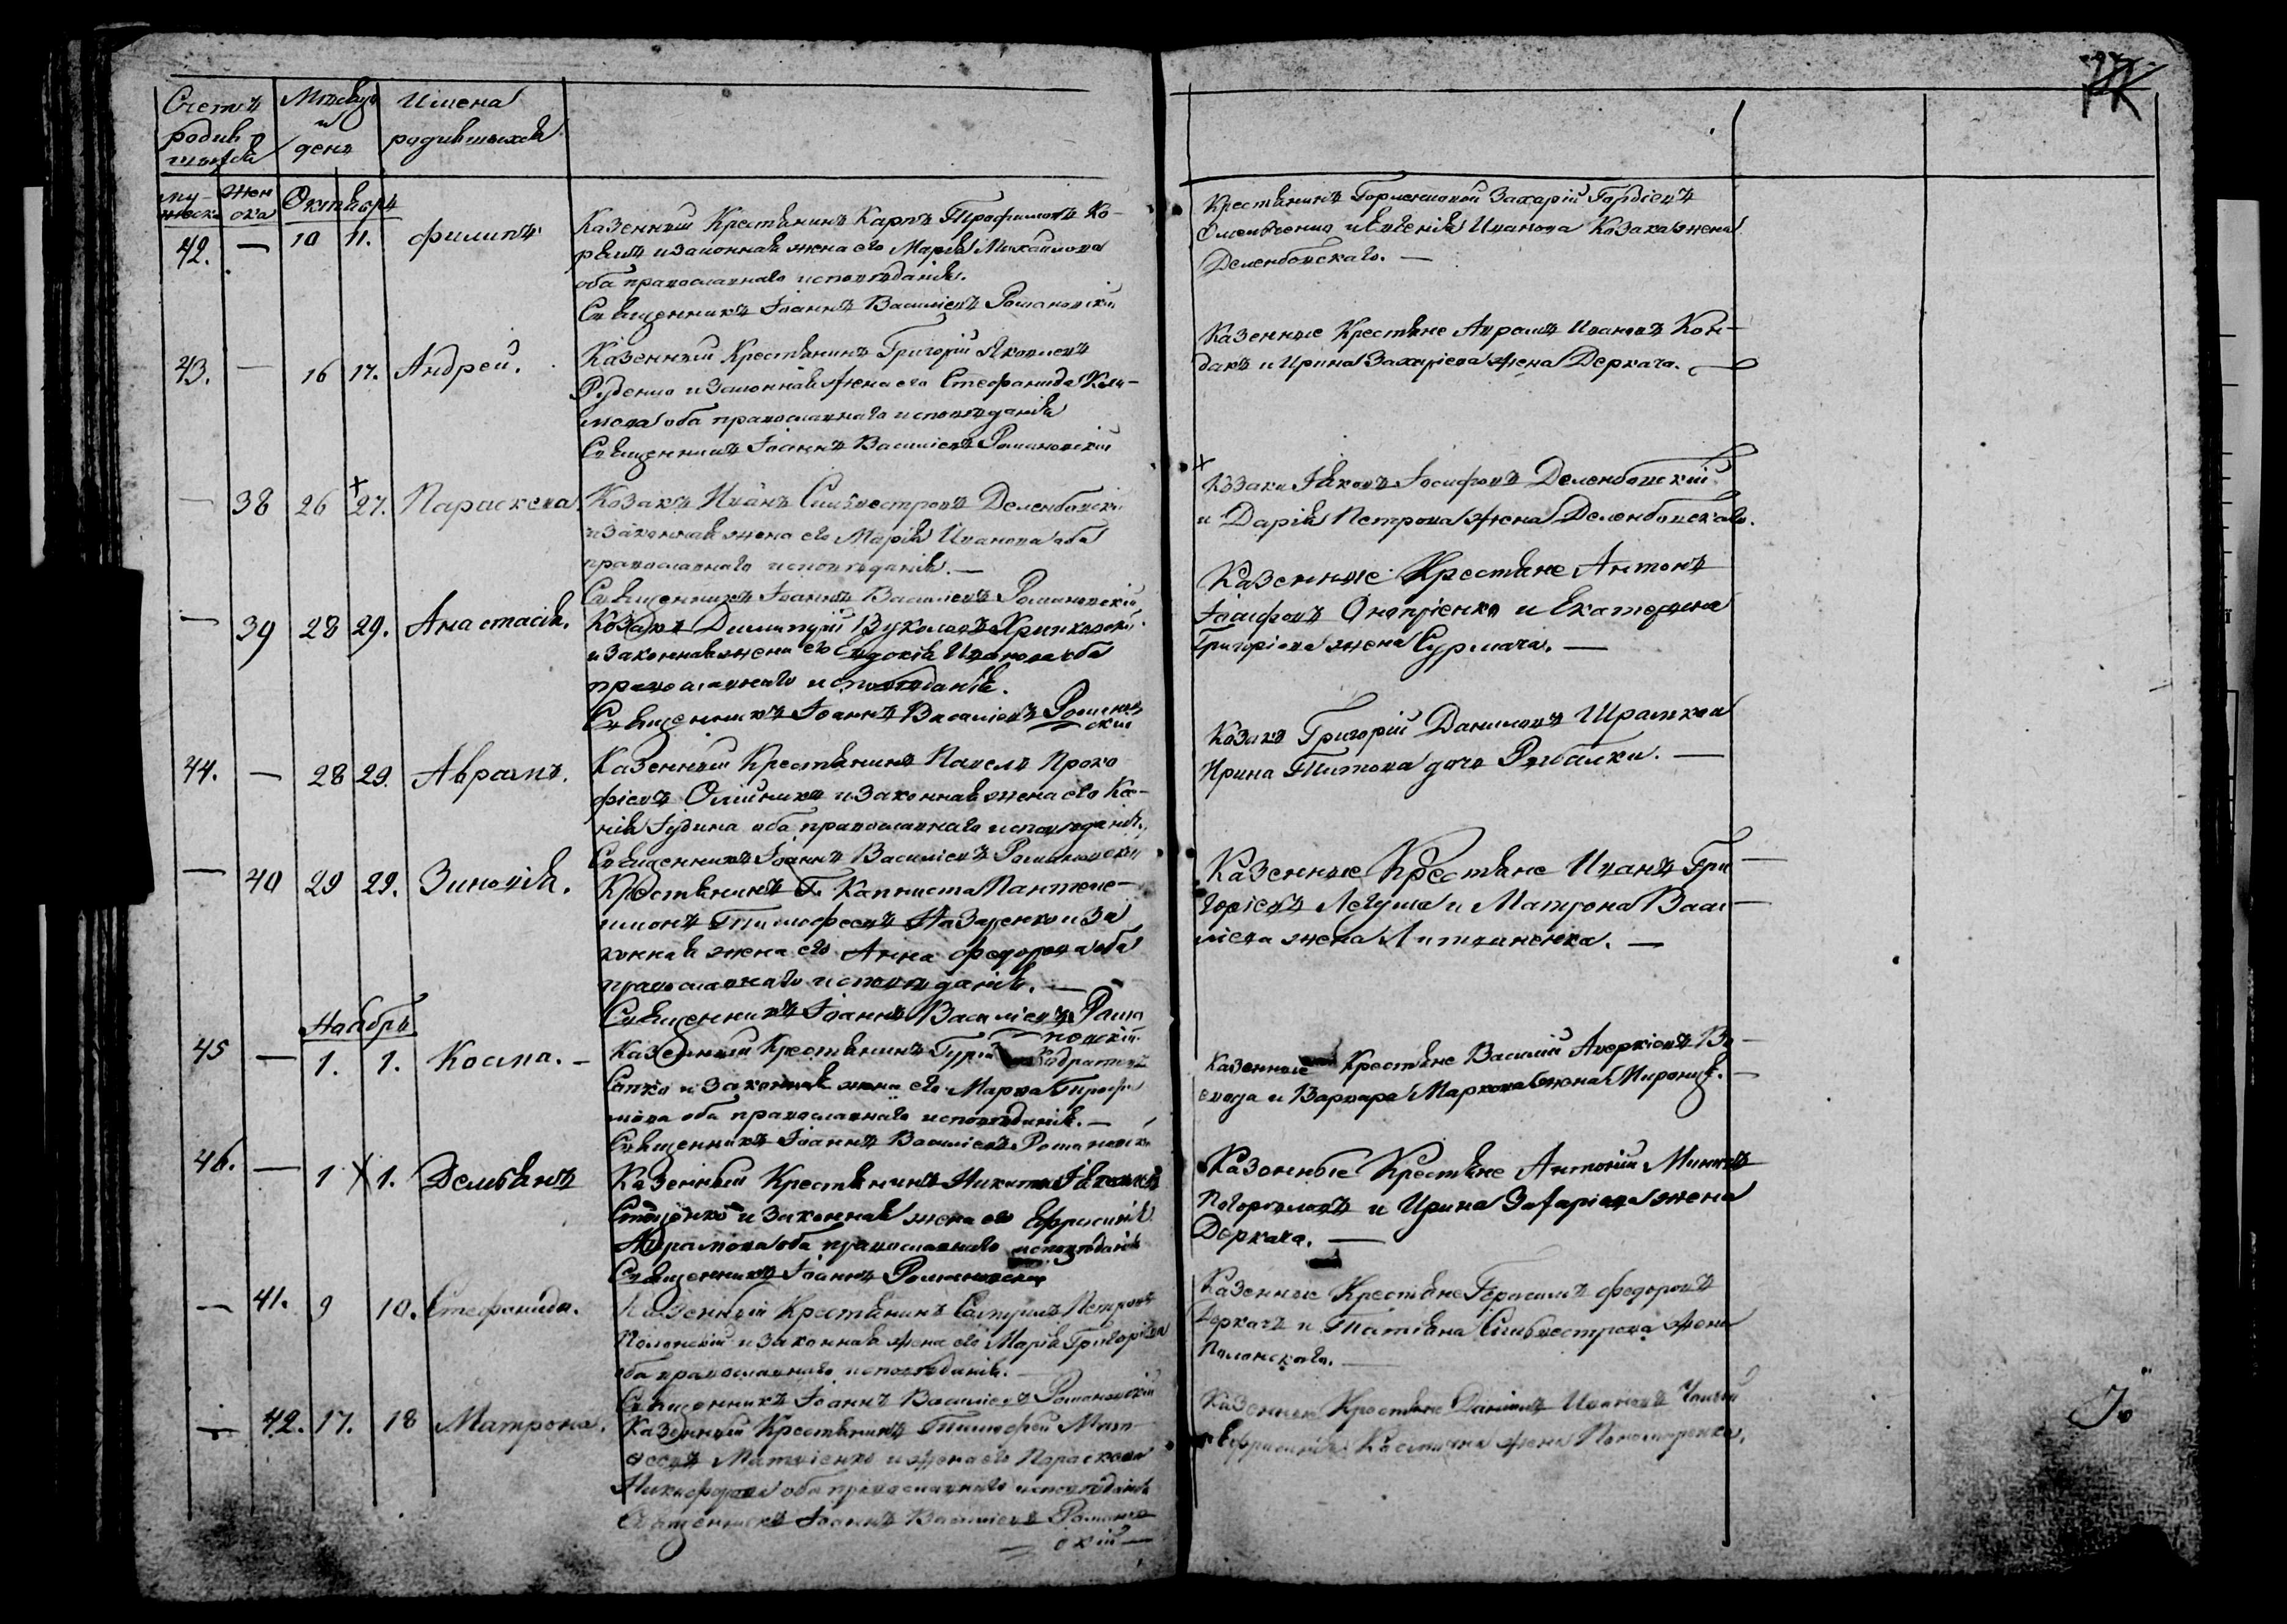 Счетъ родив-
шихся
Мѣсяцъ
и
день
Имена
родившихся
му-
жеска
жен
ска
Октябрь
42. — 10 11. Филипъ.
Казенный Крестьянинъ Карпъ Трофимовъ Ко-
и законная жена его Марія Михайлова
оба православнаго исповѣданія.
Священникъ Іоаннъ Василіевъ Романовскій
Крестьянинъ Захарій Гордіевъ
и Евгенія Иванова Козака жена
Делембовскаго. —
43. — 16 17. Андрей.
Казенный Крестьянинъ Григорій Яковлевъ
Руденко и законная жена его Стефанида Кли-
мова оба православнаго исповѣданія
Священникъ Іоаннъ Василіевъ Романовскій
Казенные Крестьяне Аврамъ Ивановъ Кон-
дакъ и Ирина Захаріева жена Деркача. —
— 38 26 27. Параскева
Козакъ Иванъ Сильвестровъ Делембовскій
и законная жена его Марія Иванова оба
православнаго исповѣданія. —
Священникъ Іоаннъ Василіевъ Романовскій
Козаки Яковъ Іосифовъ Делембовскій
и Дарія Петрова жена Делембовскаго.
— 39 28 29. Анастасія.
Козакъ Димитрій Вуколовъ
и законная жена его Евдокія Иванова оба
православнаго исповѣданія.
Священникъ Іоаннъ Василіевъ Романов
скій
Казенные Крестьяне Антонъ
Іосифовъ Онопріенко и Екатерина
Григоріева жена Сурмача. —
44. — 28 29. Аврамъ.
Казенный Крестьянинъ Павелъ Проко
фіевъ Олійникъ и законная жена его Ксе-
нія Іудина оба православнаго исповѣданія.
Священникъ Іоаннъ Василіевъ Романовскій
Козакъ Григорій Даниловъ Шрамко и
Ирина Титова дочь Рыбалки. —
— 40 29 29. Зиновія.
Крестьянинъ Г. Капниста Пантеле-
имонъ Тимофеевъ Назаренко и за
конная жена его Анна Федорова оба
православнаго исповѣданія. —
Священникъ Іоаннъ Василіевъ Рома
новскій
Казенные Крестьяне Иванъ Гри-
горіевъ Легуша и Матрона Васи-
ліева жена Литвиненка. —
Ноябрь
45 — 1. 1. Косма. —
Казенный Крестьянинъ Гурій
Сапко и законная жена его Марфа Трофи
мова оба православнаго исповѣданія. —
Священникъ Іоаннъ Василіевъ Романовскій
Казенные Крестьяне Василій Аверкіевъ
и Варвара Маркова жена
46. — 1 1. Демьянъ
Казенный Крестьянинъ Никита
Стоценко и законная жена его Ефросинія
Аврамова оба православнаго исповѣданія
Священникъ Іоаннъ Романовскій
Казенные Крестьяне Антоній
Погорѣловъ и Ирина Захаріева жена
Деркача. —
— 41. 9 10. Стефанида.
Казенный Крестьянинъ Петровъ
Полонскій и законная жена его Марія Григоріева
оба православнаго исповѣданія. —
Священникъ Іоаннъ Василіевъ Романовскій
Казенные Крестьяне Герасимъ Федоровъ
Деркачъ и Татіана Сильвестрова жена
Полонскаго. —
— 42. 17. 18 Матрона.
Казенный Крестьянинъ Тимофей Мат-
Матвіенко и жена его Параскева
Никифорова оба православнаго исповѣданія
Священникъ Іоаннъ Василіевъ Романов
скій —
Казенные Крестьяне Даніилъ Ивановъ
и Ефросинія Космина жена Пономаренка.